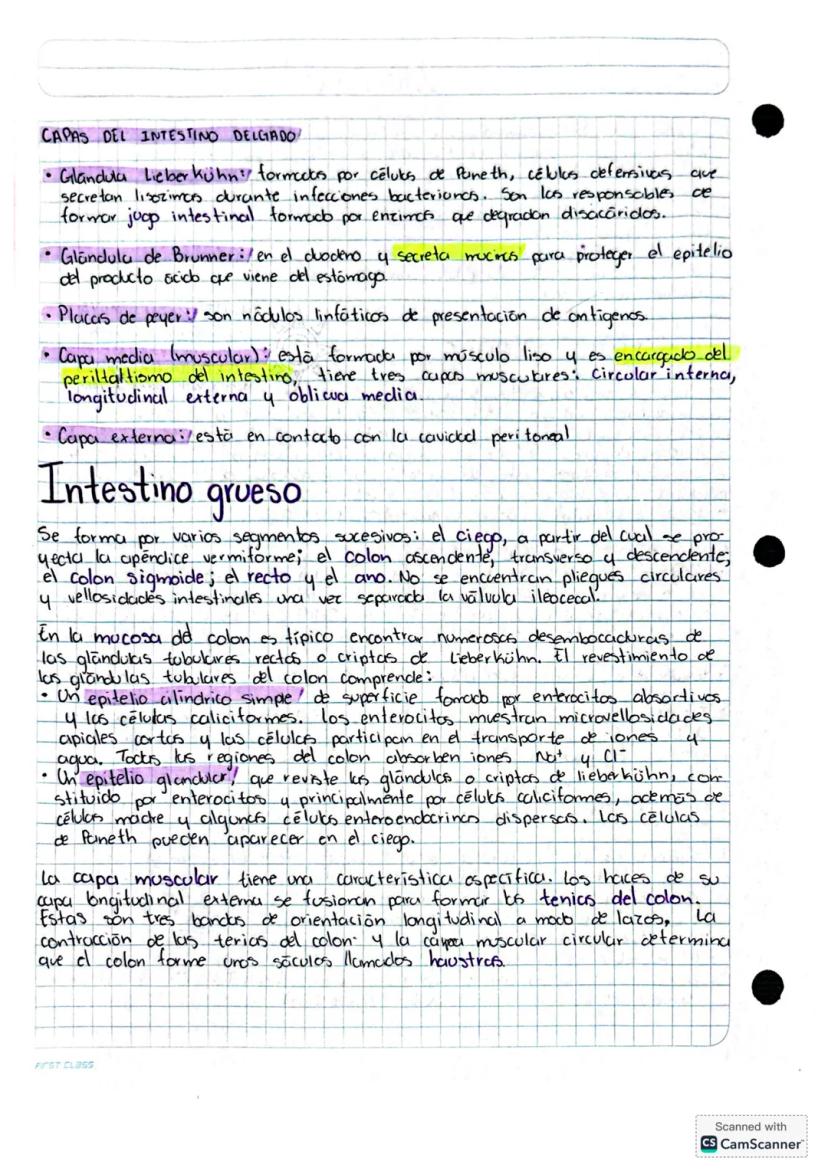 CAPAS DEL INTESTINO DELGADO
• Glándula Lieberkühn: formadas por células de Paneth, células defensivas que
secretan lisozimas durante infecciones bacterianas. Son las responsables de
formar jugo intestinal formado por enzimas que degradan disacáridos.
• Glándula de Brunner: en el duodeno y secreta mucinas para proteger el epitelio
del producto ácido que viene del estómago.
• Placas de peyer: son nódulos linfáticos de presentación de antígenos.
• Capa media (muscular): está formada por músculo liso y es encargado del
periltaltismo del intestino, tiene tres capas musculares: Circular interna,
longitudinal externa y oblicua media.
• Capa externa: está en contacto con la cavidad peritoneal
Intestino grueso
Se forma por varios segmentos sucesivos: el ciego, a partir del cual se pro-
yecta la apéndice vermiforme; el colon ascendente, transverso y descendente;
el colon sigmoide; el recto y el ano. No se encuentran pliegues circulares
y vellosidades intestinales una vez separada la válvula ileocecal.
En la mucosa del colon es típico encontrar numerosas desembocaduras de
las glándulas tubulares rectas o criptas de Lieberkühn. El revestimiento de
las glándulas tubulares del colon comprende:
• Un epitelio cilíndrico simple de superficie formado por enterocitos absortivos
y las células caliciformes. Los enterocitos muestran microvellosidades
apicales cortas y las células participan en el transporte de iones y
agua. Todas las regiones del colon absorben iones Na+ y Cl-
• Un epitelio glandular, que reviste las glándulas o criptas de lieberkühn, con
stituido por enterocitos y principalmente por células caliciformes, además de
células madre y algunas células enteroendocrinas dispersas. Las células
de Paneth pueden aparecer en el ciego.
La capa muscular tiene una característica específica. Los haces de su
capa longitudinal externa se fusionan para formar las tenias del colon.
Estas son tres bandas de orientación longitudinal a modo de lazos, La
contracción de las tenias del colon y la capa muscular circular determina
que el colon forme unos sáculos llamados haustras.
FIRST CLASS
Scanned with
CS CamScanner